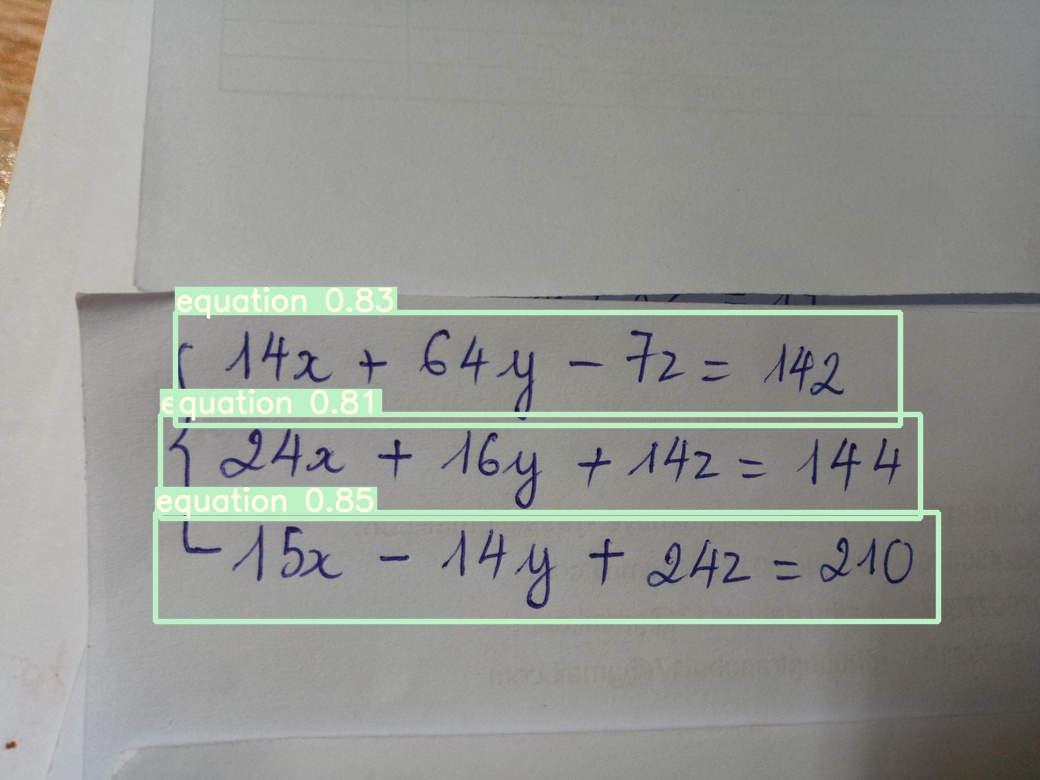 equation 0.83
14x + 64y - 7z = 142
equation 0.81
24x + 16y + 14z = 144
equation 0.85
15x - 14y + 24z = 210